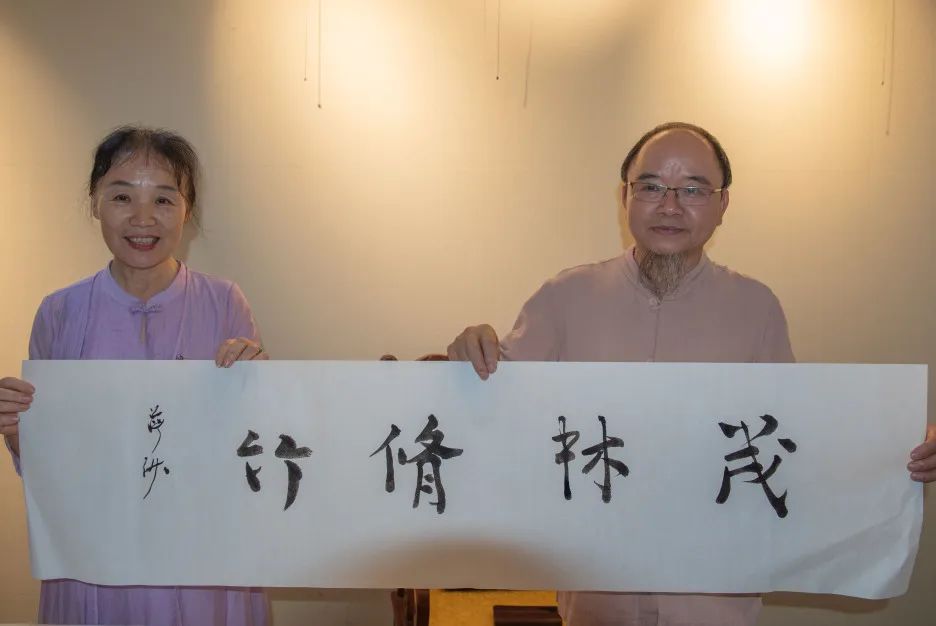 茂林脩竹